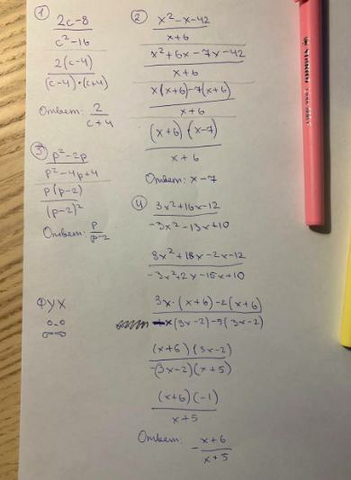 ① 2c-8
c²-16
2(c-4)
(c-4)•(c+4)
Ответ: 2
c+4
② x²-x-42
x+6
x²+6x-7x-42
x+6
x(x+6)-7(x+6)
x+6
(x+6)•(x-7)
x+6
Ответ: x-7
③ p²-2p
p²-4p+4
p(p-2)
(p-2)²
Ответ: p
p-2
④ 3x²+16x-12
-3x²-13x+10
3x²+18x-2x-12
-3x²+2x-15x+10
3x•(x+6)-2(x+6)
-x(3x-2)-5(3x-2)
(x+6)(3x-2)
-(3x-2)(x+5)
(x+6)(-1)
x+5
Ответ: - x+6
x+5
ФУХ